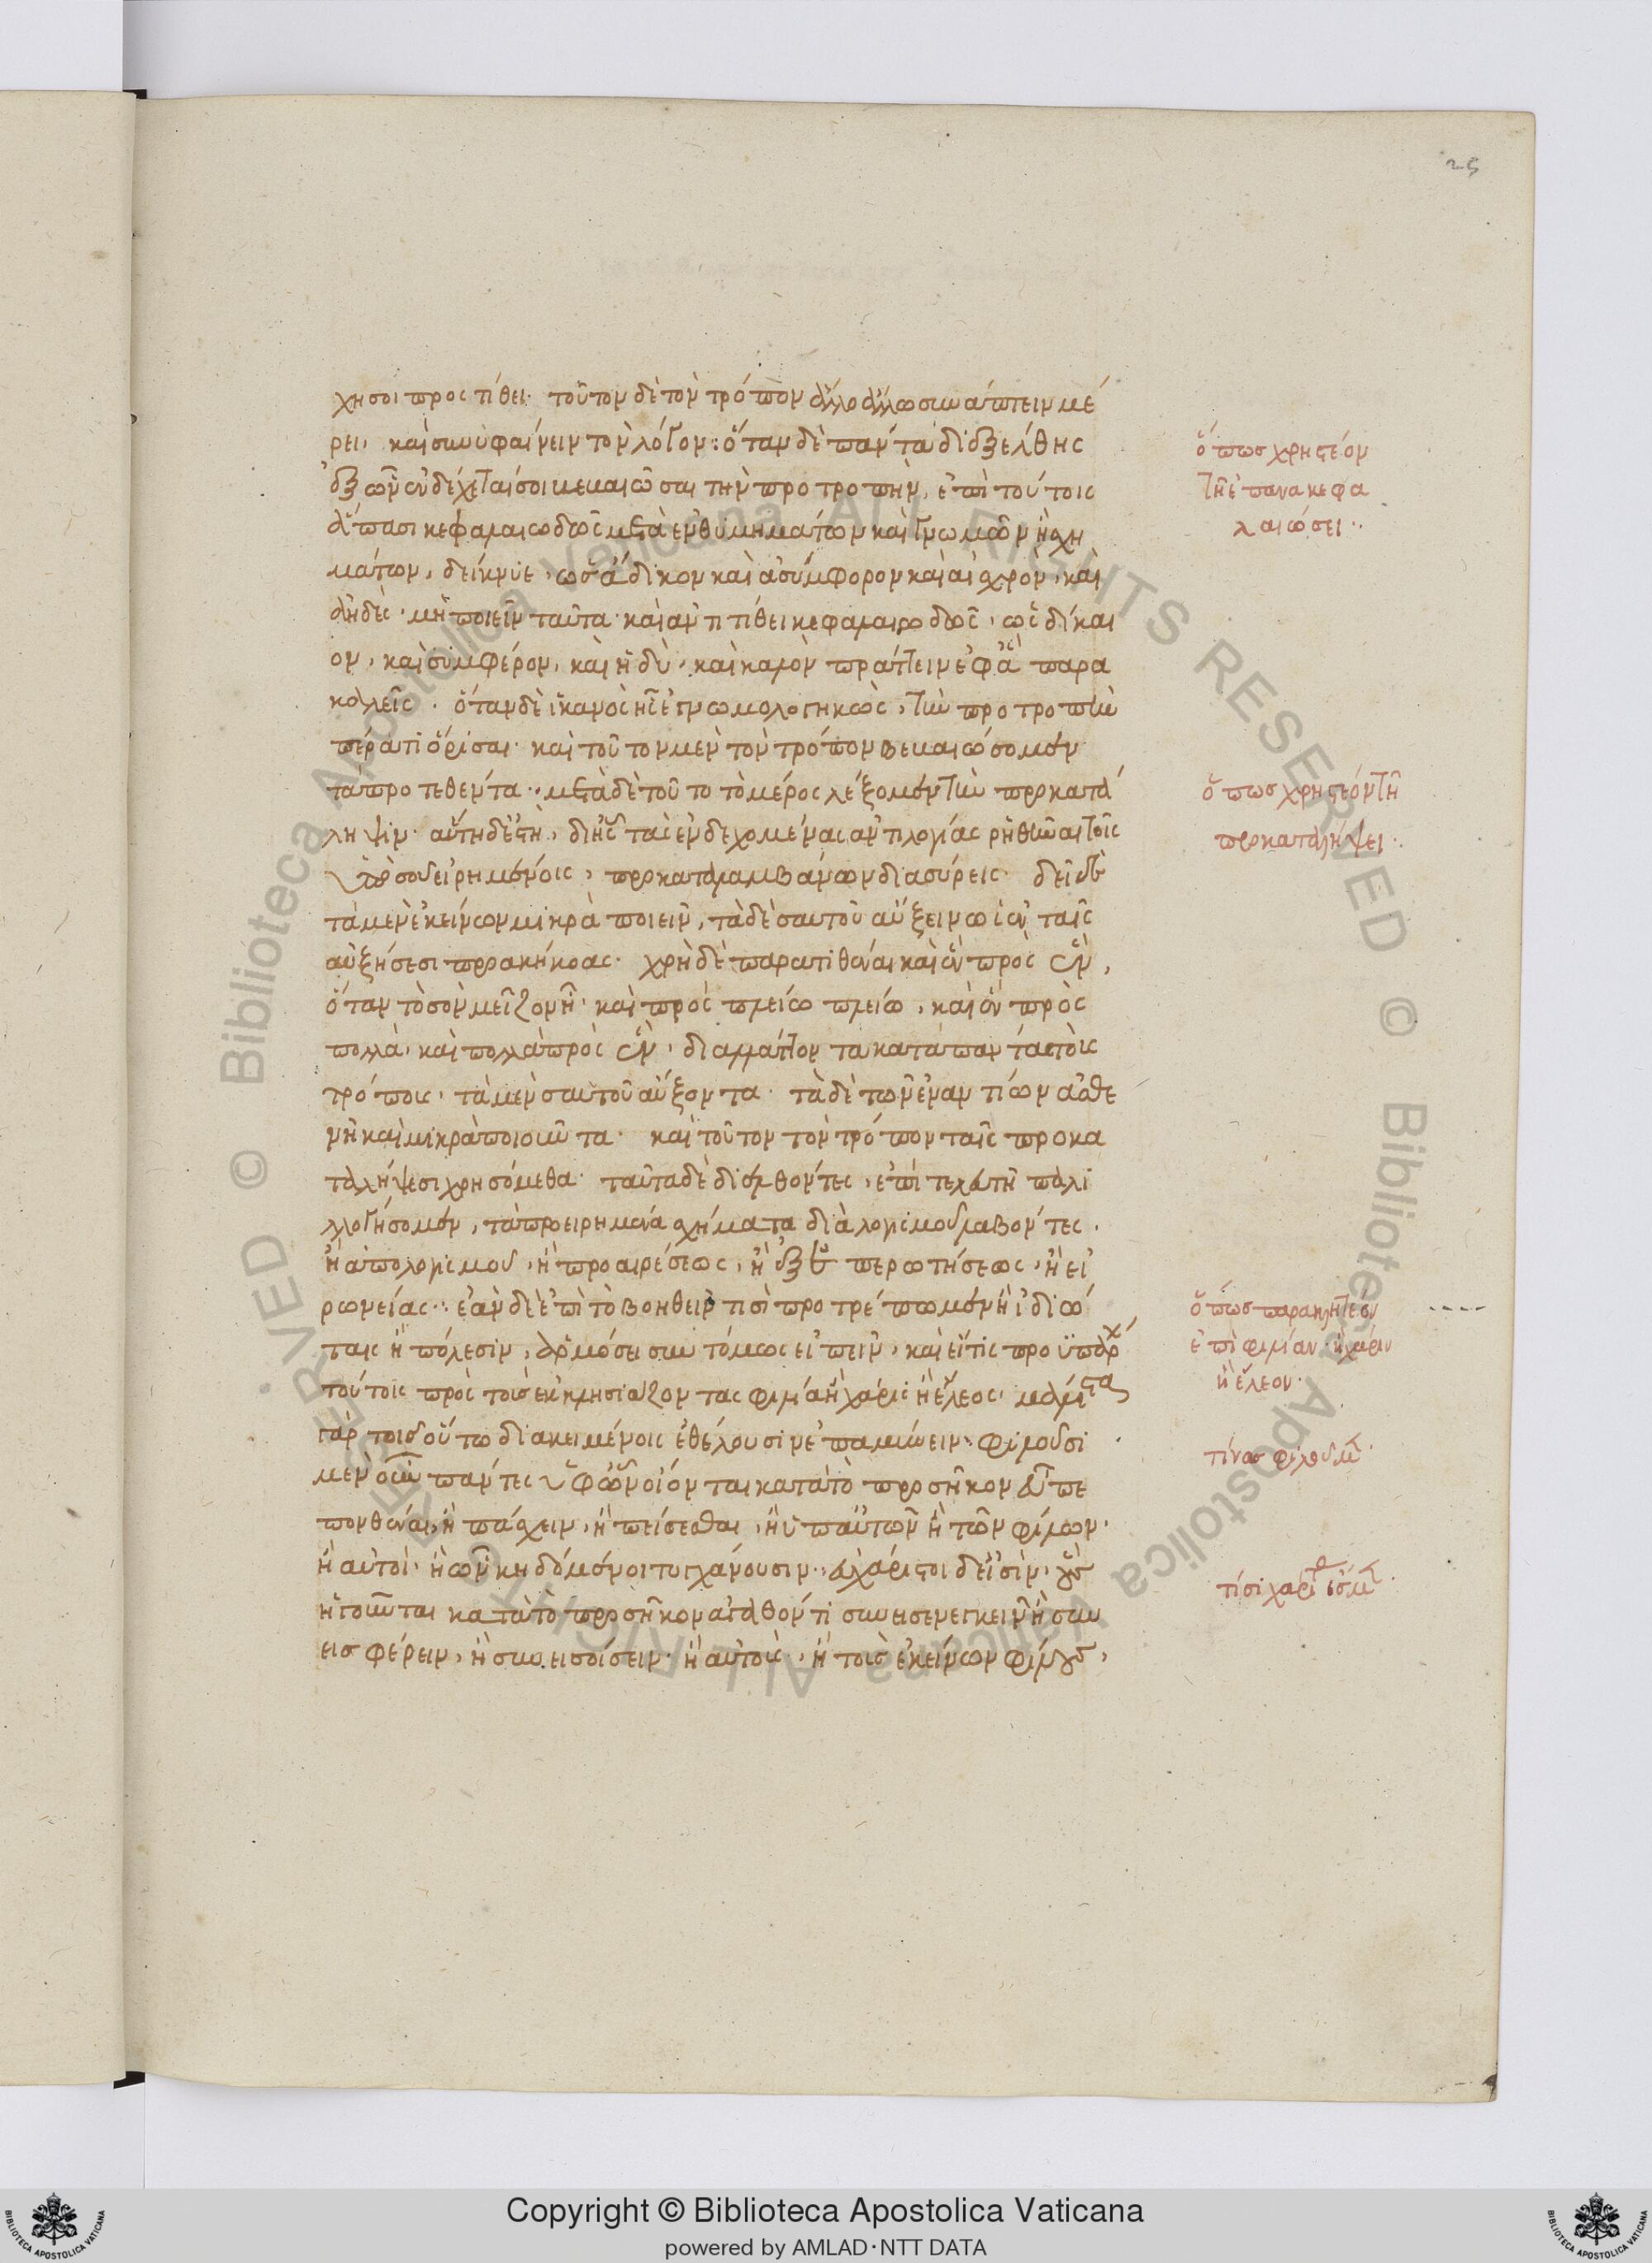 25
χη σοι προστίθει· τοῦτον δὲ τὸν τρόπον ἄλλο ἄλλω συνάπτειν μέ
ρει, καὶ συνυφαίνειν τὸν λόγον: ὅταν δὲ πάντα διεξέλθης
ἐξ ὧν ἐνδέχεταί σοι βεβαιῶσαι τὴν προτροπὴν, ἐπὶ τούτοις
ἅπασι κεφαλαιωδῶς μετὰ ἐνθυμημάτων καὶ γνωμῶν ἢ σχη
μάτων, δείκνυε, ὡς ἄδικον καὶ ἀσύμφορον καὶ αἰσχρὸν, καὶ
ἀηδὲς μὴ ποιεῖν ταῦτα· καὶ ἀντιτίθει κεφαλαιωδῶς, ὡς δίκαι
ον, καὶ συμφέρον, καὶ ἡδὺ, καὶ καλὸν πράττειν ἐφ' ἃ παρα
καλεῖς· ὅταν δὲ ἱκανῶς ἦς ἐγνωμολογηκὼς, τὴν προτροπὴν
πέρατι ὅρισαι· καὶ τοῦτον μὲν τὸν τρόπον βεβαιώσομεν
τὰ προτεθέντα: μετὰ δὲ τοῦτο τὸ μέρος λέξομεν τὴν προκατά
ληψιν· αὕτη δέ ἐστι, δι' ἧς τὰς ἐνδεχομένας ἀντιλογίας ῥηθῆναι τοῖς
ὑπὸ σοῦ εἰρημένοις, προκαταλαμβάνων διασύρεις· δεῖ δὲ
τὰ μὲν ἐκείνων μικρὰ ποιεῖν, τὰ δὲ σαυτοῦ αὔξειν ὡς ἐν ταῖς
αὐξήσεσι προακήκοας· χρὴ δὲ παρατιθέναι καὶ ἓν πρὸς ἓν,
ὅταν τὸ σὸν μεῖζον ἦ· καὶ πρὸς πλείω πλείω, καὶ ἓν πρὸς
πολλὰ, καὶ πολλὰ πρὸς ἓν, διαλλάττοντα κατὰ πάντας τοὺς
τρόπους, τὰ μὲν σαυτοῦ αὔξοντα· τὰ δὲ τῶν ἐναντίων ἀσθε
νῆ καὶ μικρὰ ποιοῦντα· καὶ τοῦτον τὸν τρόπον ταῖς προκα
ταλήψεσι χρησόμεθα· ταῦτα δὲ διελθόντες, ἐπὶ τελευτῆ παλι
λλογήσομεν, τὰ προειρημένα σχήματα διαλογισμοῦ λαβόντες.
ἢ ἀπολογισμοῦ, ἢ προαιρέσεως, ἢ ἐξ ἐπερωτήσεως, ἢ εἰ
ρωνείας: ἐὰν δὲ ἐπὶ τὸ βοηθεῖν τισὶ προτρέπωμεν ἢ ἰδιώ
ταις ἢ πόλεσιν, ἁρμόσει συντόμως εἰπεῖν, καὶ εἴ τις προϋπάρχ
τούτοις πρὸς τοὺς ἐκκλησιάζοντας φιλία ἢ χάρις ἢ ἔλεος· μάλιστα
γὰρ τοῖς οὕτω διακειμένοις ἐθέλουσιν ἐπαμύνειν: φιλοῦσι
μὲν οὖν πάντες ὑφ' ὧν οἴονται κατὰ τὸ προσῆκον εὖ πε
πονθέναι, ἢ πάσχειν, ἢ πείσεσθαι, ἢ ὑπ' αὐτῶν ἢ τῶν φίλων·
ἢ αὐτοὶ· ἢ ὧν κηδόμενοι τυγχάνουσιν: ἀχάριστοι δέ εἰσιν, οὓς
ἡγοῦνται κατὰ τὸ προσῆκον ἀγαθόν τι συνεισενεγκεῖν ἢ συν
εισφέρειν, ἢ συνεισοίσειν· ἢ αὐτοῖς, ἢ τοῖς ἐκείνων φίλοις,
ὅπως χρηστέον
τῆ ἐπανακεφα
λαιώσει·
ὅπως χρηστέον τῆ
προκαταλήψει·
ὅπως παρακλητέον
ἐπὶ φιλίαν· ἢ χάριν
ἢ ἔλεον·
τίνας φιλοῦμεν·
τίσι
© Biblioteca Apostolica Vaticana ALL RIGHTS RESERVED
© Biblioteca Apostolica Vaticana ALL RIGHTS RESERVED
Copyright © Biblioteca Apostolica Vaticana
powered by AMLAD·NTT DATA
BIBLIOTECA APOSTOLICA VATICANA
BIBLIOTECA APOSTOLICA VATICANA